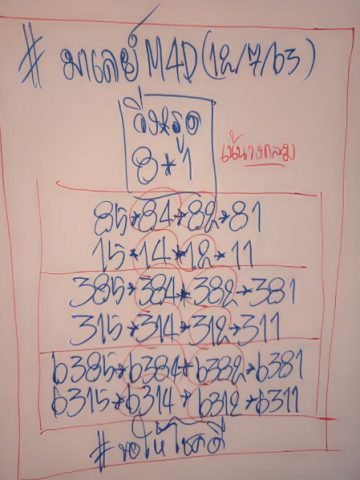 # มาเลย์ M4D (12/7/63)
วิ่งหรูด
8*1
เน้นางกลม
85*84*82*81
15*14*12*11
385*384*382*381
315*314*312*311
6385*6384*6382*6381
6315*6314*6312*6311
#ขอให้โชคดี